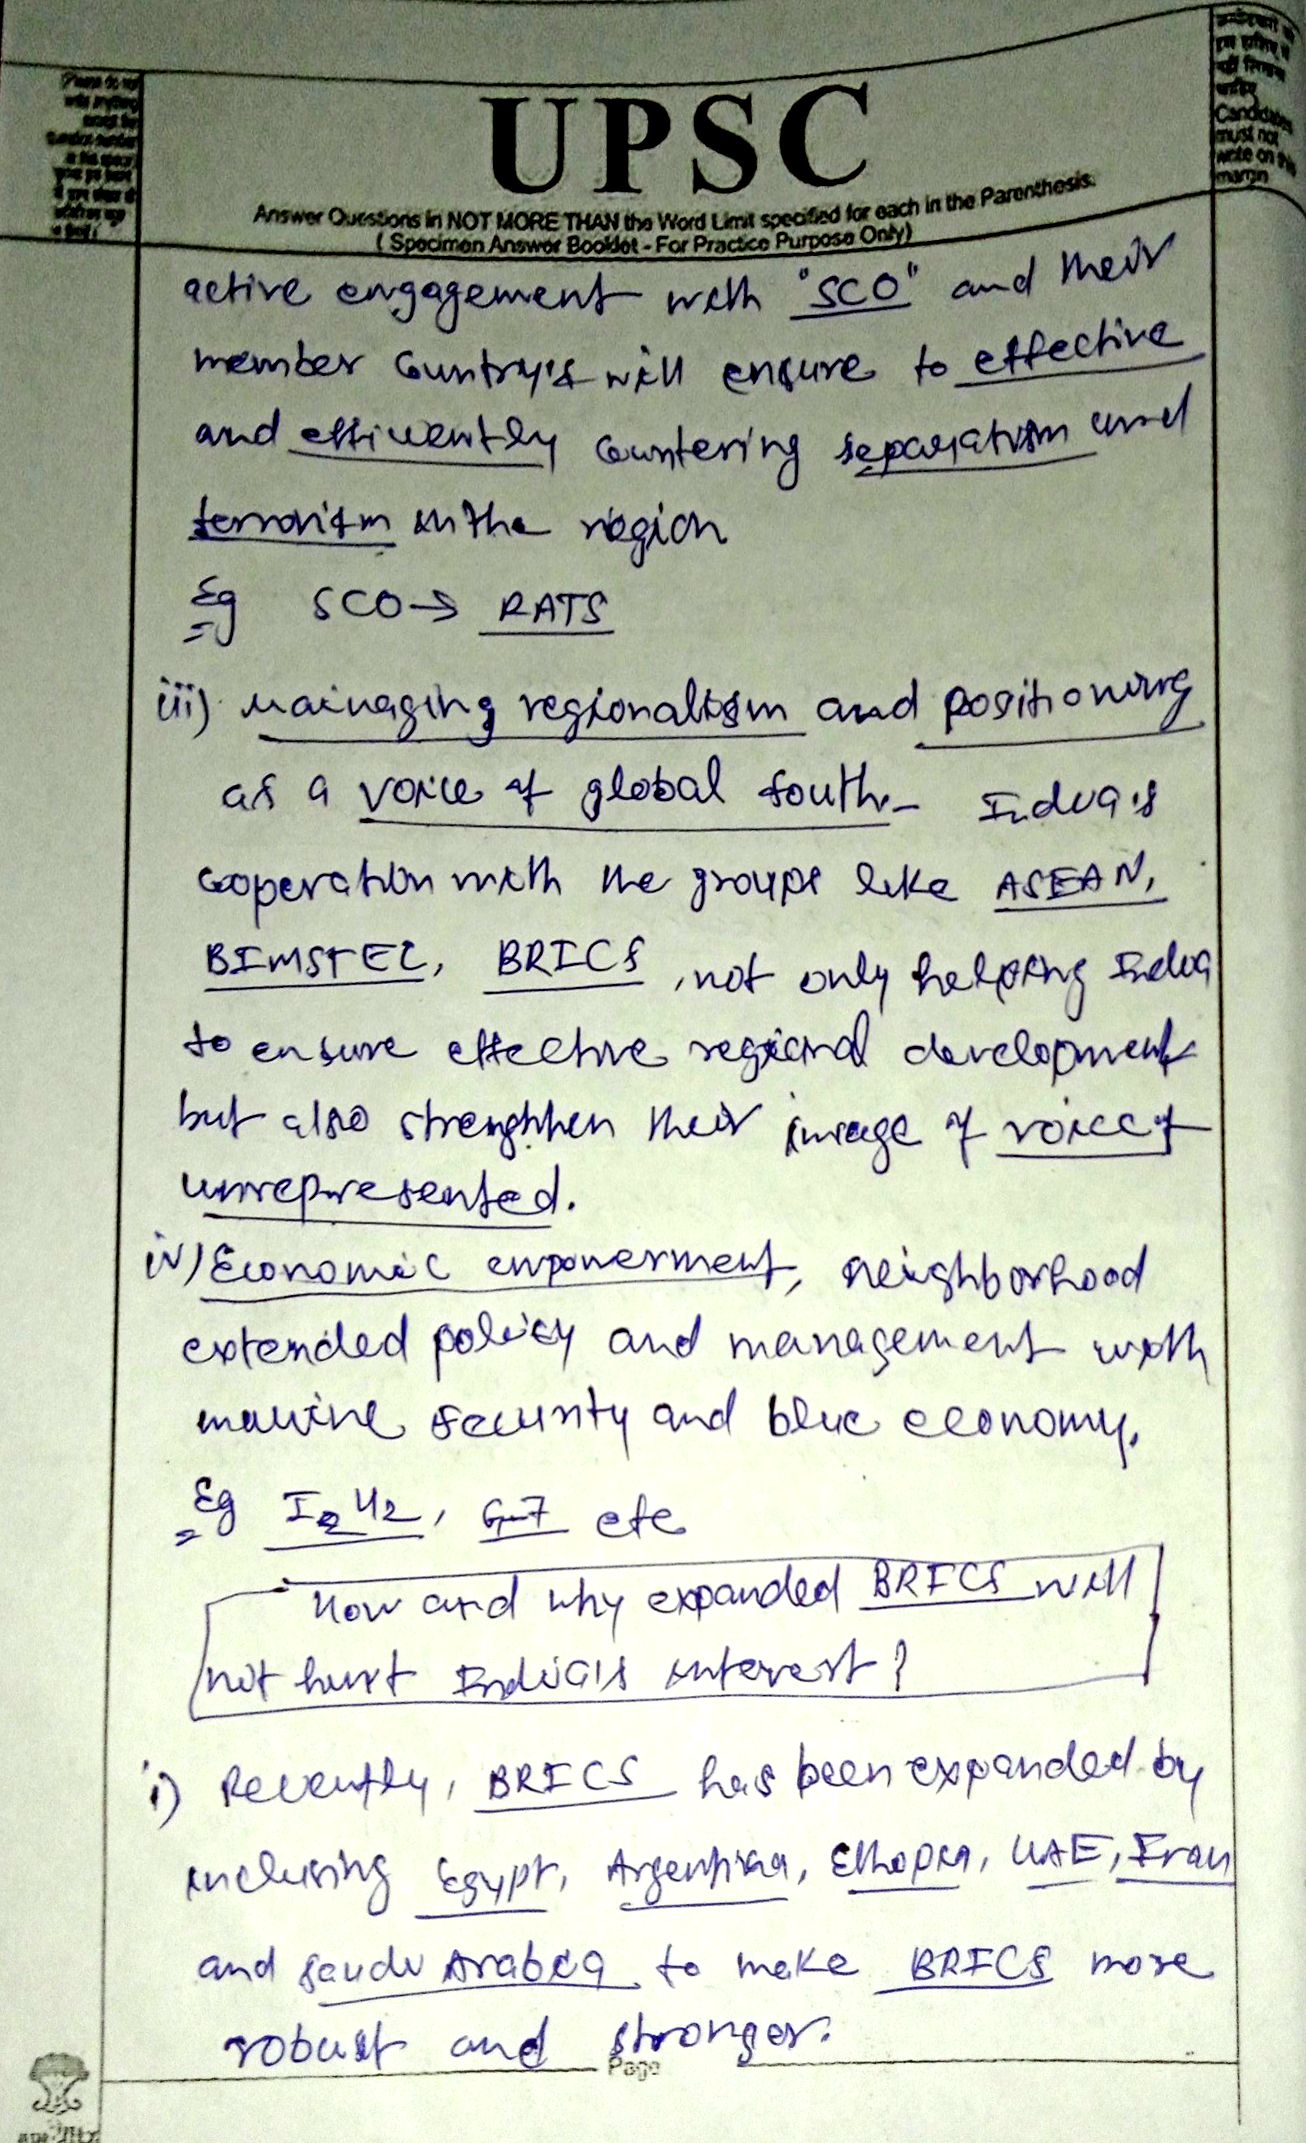 Please do not
write anything
except the
Question number
in this space
Candidates
must not
write on this
margin
UPSC
Answer Questions in NOT MORE THAN the Word Limit specified for each in the Parenthesis.
( Specimen Answer Booklet - For Practice Purpose Only)
active engagement with "SCO" and their
member country's will ensure to effective
and efficiently countering separatism and
terrorism in the region
Eg SCO → RATS
iii) Mainaging regionalism and positioning
as a voice of global south - India's
cooperation with the groups like ASEAN,
BIMSTEC, BRICS, not only helping India
to ensure effective regional development
but also strenghthen their image of voice of
unrepresented.
iv) Economic empowerment, neighborhood
extended policy and management with
marine security and blue economy.
Eg I2U2, G-7 etc
How and why expanded BRICS will
not hurt India's interest?
i) Recently, BRICS has been expanded by
inclusing Egypt, Argentina, Ethopia, UAE, Iran
and Saudi Arabia to make BRICS more
robust and stronger.
Page